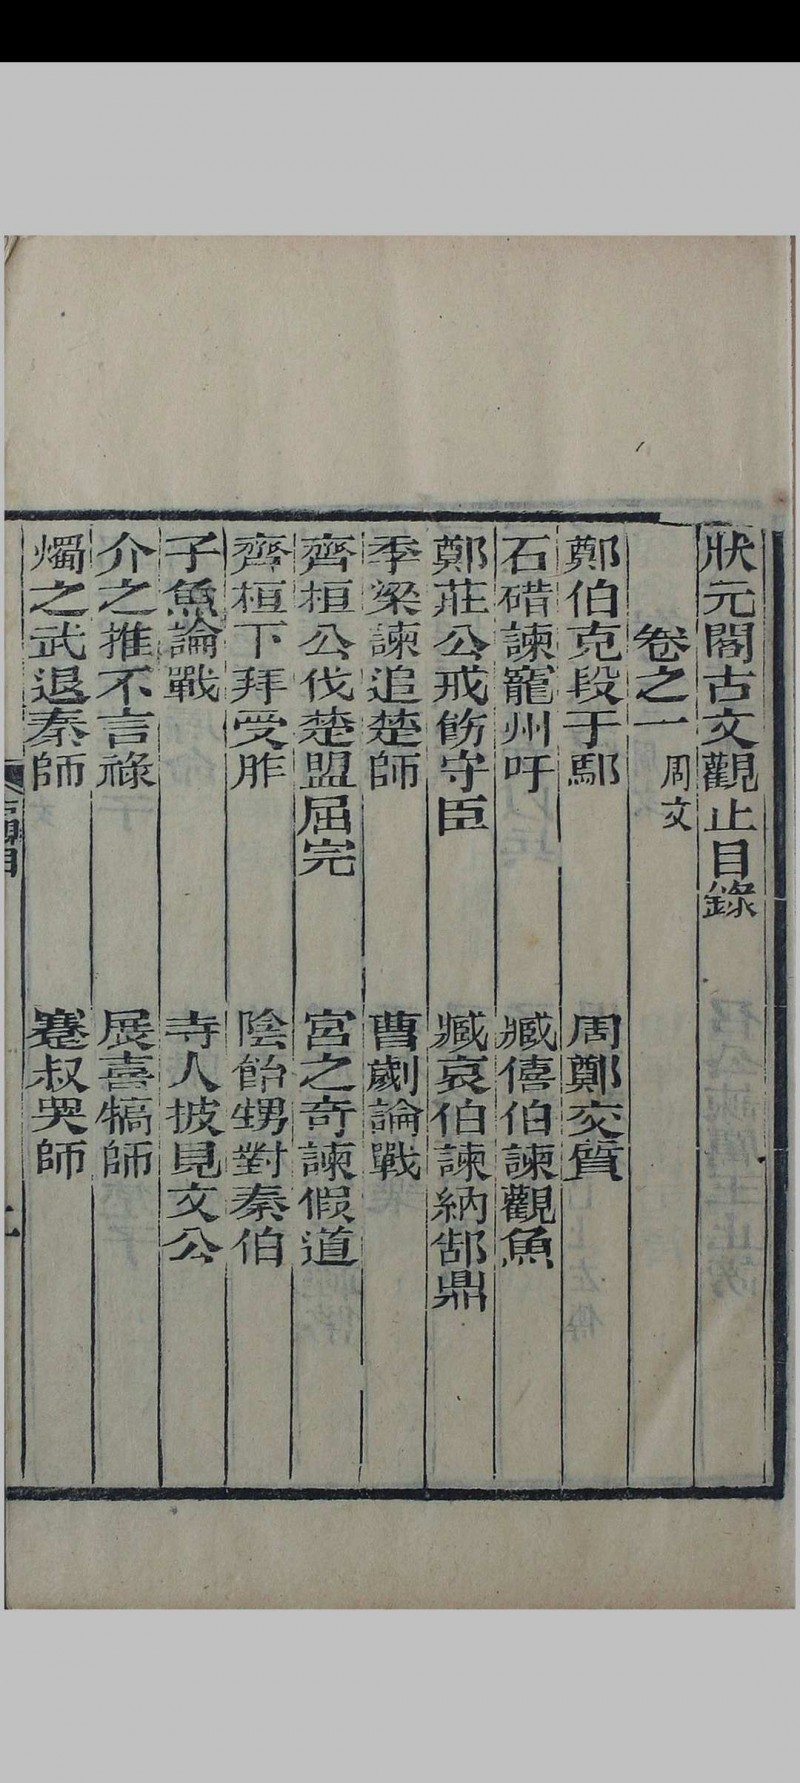 狀元閣古文觀止目錄
卷之一 周文
鄭伯克段于鄢 周鄭交質
石碏諫寵州吁 臧僖伯諫觀魚
鄭莊公戒飭守臣 臧哀伯諫納郜鼎
季梁諫追楚師 曹劌論戰
齊桓公伐楚盟屈完 宮之奇諫假道
齊桓下拜受胙 陰飴甥對秦伯
子魚論戰 寺人披見文公
介之推不言祿 展喜犒師
燭之武退秦師 蹇叔哭師